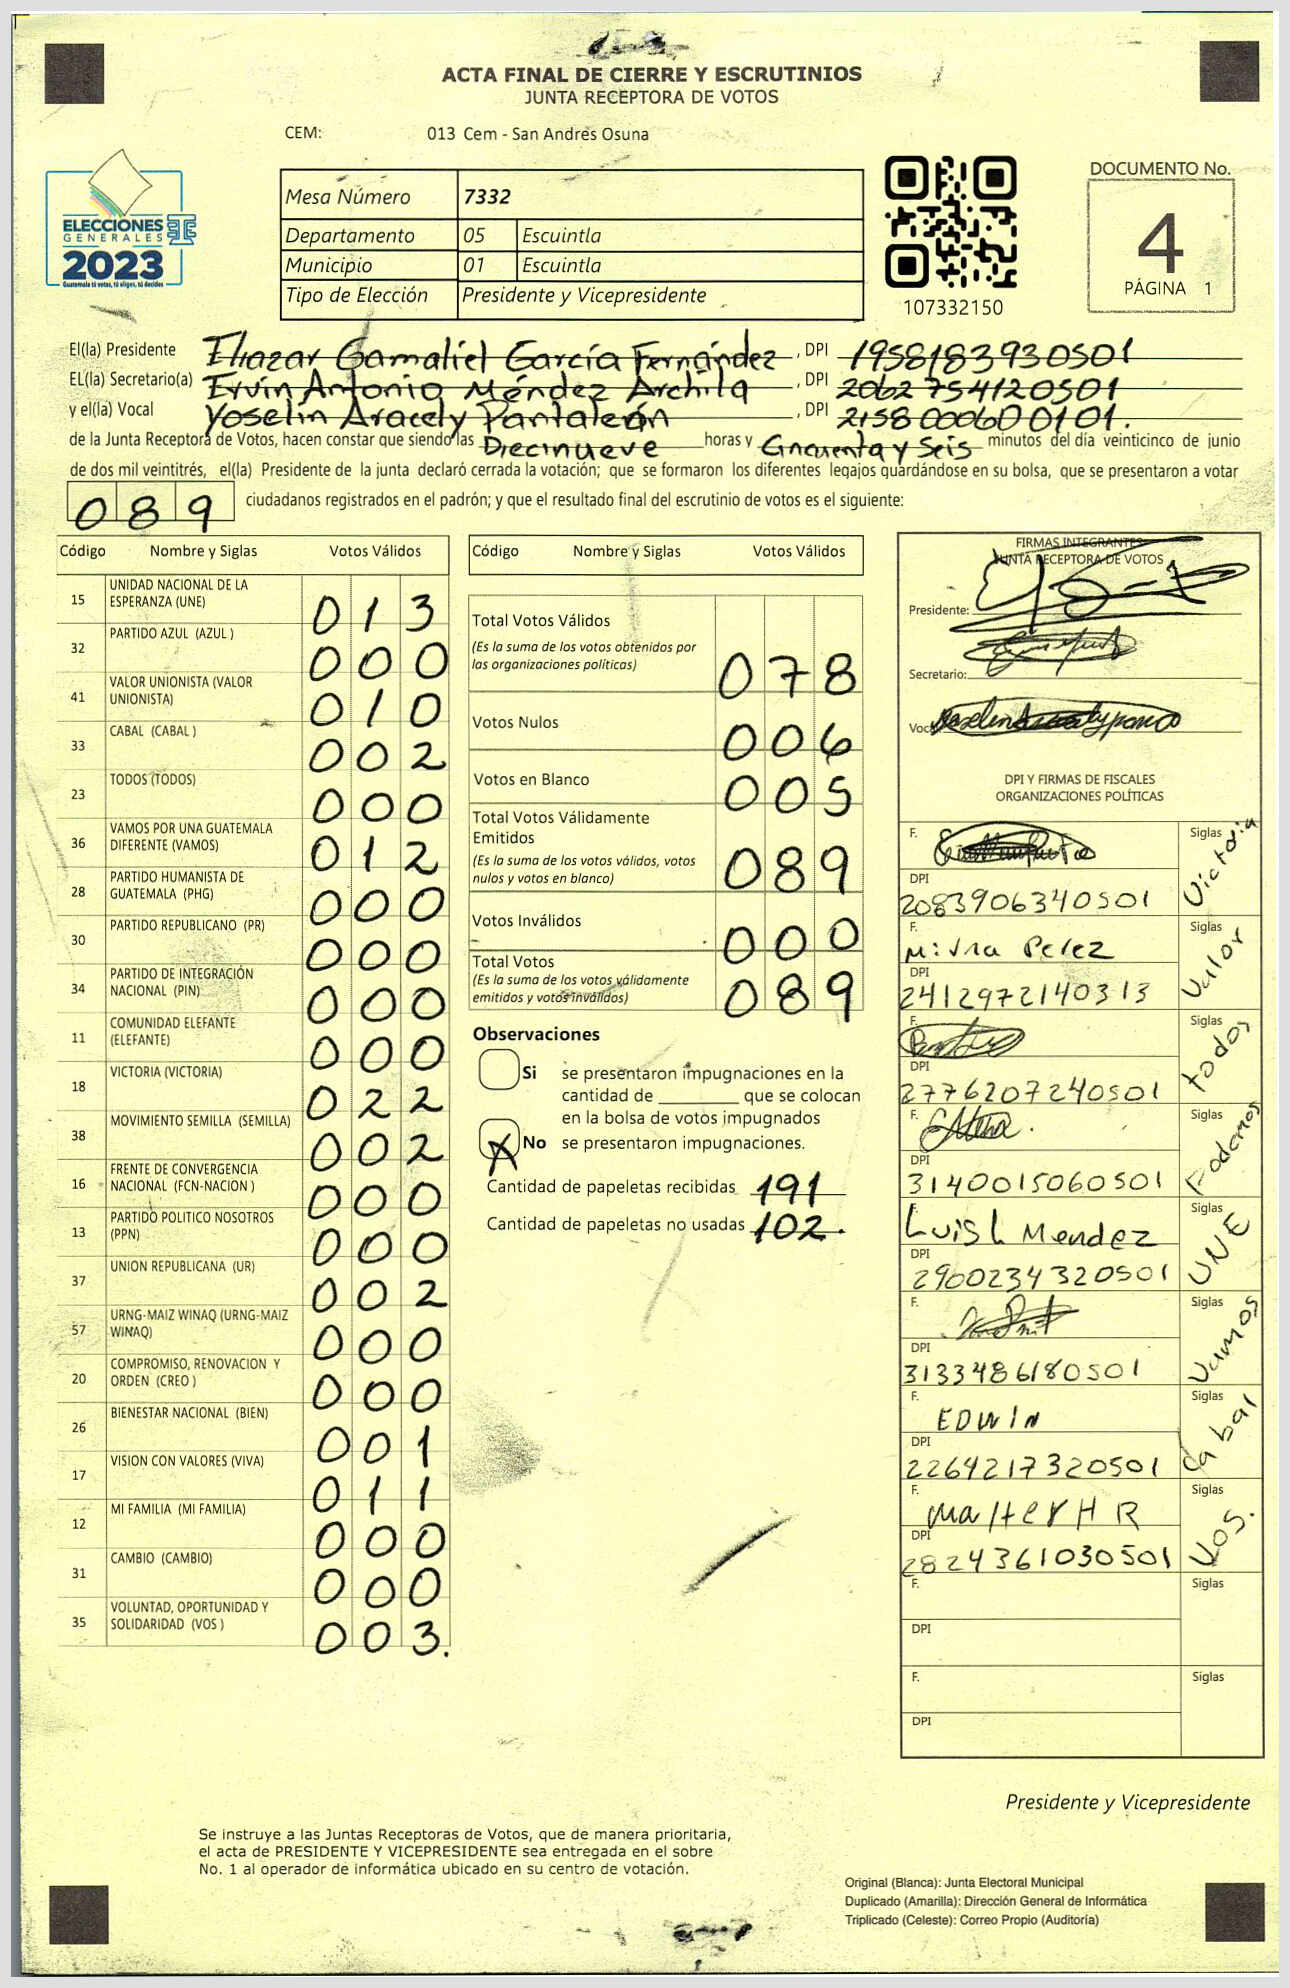 ACTA FINAL DE CIERRE Y ESCRUTINIOS
JUNTA RECEPTORA DE VOTOS
CEM: 013 Cem - San Andres Osuna
ELECCIONES
GENERALES
2023
Guatemala tú votas, tú eliges, tú decides
Mesa Número 7332
Departamento 05 Escuintla
Municipio 01 Escuintla
Tipo de Elección Presidente y Vicepresidente
107332150
DOCUMENTO No.
4
PÁGINA 1
El(la) Presidente Eliazar Gamaliel García Fernández , DPI 1958183930501
EL(la) Secretario(a) Ervin Antonio Méndez Archila , DPI 2062754120501
y el(la) Vocal Yoselin Aracely Pantaleón , DPI 2158000600101.
de la Junta Receptora de Votos, hacen constar que siendo las Diecinueve horas y Cincuenta y Seis minutos del día veinticinco de junio
de dos mil veintitrés, el(la) Presidente de la junta declaró cerrada la votación; que se formaron los diferentes legajos guardándose en su bolsa, que se presentaron a votar
089 ciudadanos registrados en el padrón; y que el resultado final del escrutinio de votos es el siguiente:
Código Nombre y Siglas Votos Válidos
15 UNIDAD NACIONAL DE LA ESPERANZA (UNE) 013
32 PARTIDO AZUL (AZUL ) 000
41 VALOR UNIONISTA (VALOR UNIONISTA) 010
33 CABAL (CABAL ) 002
23 TODOS (TODOS) 000
36 VAMOS POR UNA GUATEMALA DIFERENTE (VAMOS) 012
28 PARTIDO HUMANISTA DE GUATEMALA (PHG) 000
30 PARTIDO REPUBLICANO (PR) 000
34 PARTIDO DE INTEGRACIÓN NACIONAL (PIN) 000
11 COMUNIDAD ELEFANTE (ELEFANTE) 000
18 VICTORIA (VICTORIA) 022
38 MOVIMIENTO SEMILLA (SEMILLA) 002
16 FRENTE DE CONVERGENCIA NACIONAL (FCN-NACION ) 000
13 PARTIDO POLITICO NOSOTROS (PPN) 000
37 UNION REPUBLICANA (UR) 002
57 URNG-MAIZ WINAQ (URNG-MAIZ WINAQ) 000
20 COMPROMISO, RENOVACION Y ORDEN (CREO ) 000
26 BIENESTAR NACIONAL (BIEN) 001
17 VISION CON VALORES (VIVA) 011
12 MI FAMILIA (MI FAMILIA) 000
31 CAMBIO (CAMBIO) 000
35 VOLUNTAD, OPORTUNIDAD Y SOLIDARIDAD (VOS ) 003.
Código Nombre y Siglas Votos Válidos
Total Votos Válidos
(Es la suma de los votos obtenidos por
las organizaciones políticas) 078
Votos Nulos 006
Votos en Blanco 005
Total Votos Válidamente
Emitidos
(Es la suma de los votos válidos, votos
nulos y votos en blanco) 089
Votos Inválidos 000
Total Votos
(Es la suma de los votos válidamente
emitidos y votos inválidos) 089
Observaciones
Si se presentaron impugnaciones en la
cantidad de ________ que se colocan
en la bolsa de votos impugnados
X No se presentaron impugnaciones.
Cantidad de papeletas recibidas 191
Cantidad de papeletas no usadas 102.
FIRMAS INTEGRANTES
JUNTA RECEPTORA DE VOTOS
Presidente:
Secretario:
DPI Y FIRMAS DE FISCALES
ORGANIZACIONES POLÍTICAS
F. Siglas Victoria
DPI 2083906340501
F. Perez Siglas Valor
DPI 2412972140313
F. Siglas todos
DPI 2776207240501
F. Siglas Podemos
DPI 3140015060501
F. Luis L Mendez Siglas UNE
DPI 2900234320501
F. Siglas Vamos
DPI 3133486180501
F. EDWIN Siglas Cabal
DPI 2264217320501
F. Walter H R Siglas Vos.
DPI 2824361030501
F. Siglas
DPI
F. Siglas
DPI
Presidente y Vicepresidente
Se instruye a las Juntas Receptoras de Votos, que de manera prioritaria,
el acta de PRESIDENTE Y VICEPRESIDENTE sea entregada en el sobre
No. 1 al operador de informática ubicado en su centro de votación.
Original (Blanca): Junta Electoral Municipal
Duplicado (Amarilla): Dirección General de Informática
Triplicado (Celeste): Correo Propio (Auditoría)